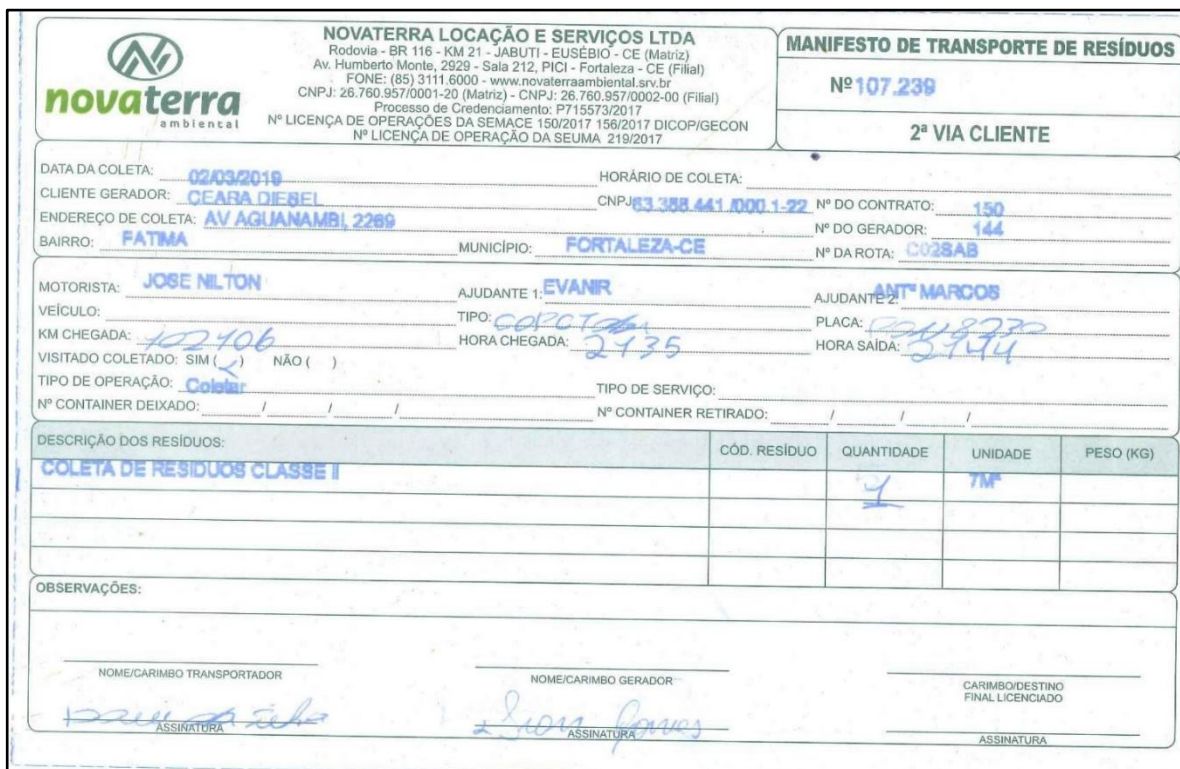 novaterra
ambiental
NOVATERRA LOCAÇÃO E SERVIÇOS LTDA
Rodovia - BR 116 - KM 21 - JABUTI - EUSÉBIO - CE (Matriz)
Av. Humberto Monte, 2929 - Sala 212, PICI - Fortaleza - CE (Filial)
FONE: (85) 3111.6000 - www.novaterraambiental.srv.br
CNPJ: 26.760.957/0001-20 (Matriz) - CNPJ: 26.760.957/0002-00 (Filial)
Processo de Credenciamento: P715573/2017
Nº LICENÇA DE OPERAÇÕES DA SEMACE 150/2017 156/2017 DICOP/GECON
Nº LICENÇA DE OPERAÇÃO DA SEUMA 219/2017
MANIFESTO DE TRANSPORTE DE RESÍDUOS
Nº 107.239
2ª VIA CLIENTE
DATA DA COLETA: 02/03/2019 HORÁRIO DE COLETA:
CLIENTE GERADOR: CEARA DIESEL CNPJ: Nº DO CONTRATO: 150
ENDEREÇO DE COLETA: AV AGUANAMBI, 2269 Nº DO GERADOR: 144
BAIRRO: FATIMA MUNICÍPIO: FORTALEZA-CE Nº DA ROTA: C02SAB
MOTORISTA: JOSE NILTON AJUDANTE 1: EVANIR AJUDANTE 2: ANTº MARCOS
VEÍCULO: TIPO: PLACA:
KM CHEGADA: HORA CHEGADA: 2135 HORA SAÍDA:
VISITADO COLETADO: SIM ( ) NÃO ( )
TIPO DE OPERAÇÃO: Coletar TIPO DE SERVIÇO:
Nº CONTAINER DEIXADO: / / / Nº CONTAINER RETIRADO: / / /
DESCRIÇÃO DOS RESÍDUOS: CÓD. RESÍDUO QUANTIDADE UNIDADE PESO (KG)
COLETA DE RESIDUOS CLASSE II 1 7M³
OBSERVAÇÕES:
NOME/CARIMBO TRANSPORTADOR NOME/CARIMBO GERADOR CARIMBO/DESTINO
FINAL LICENCIADO
ASSINATURA ASSINATURA ASSINATURA